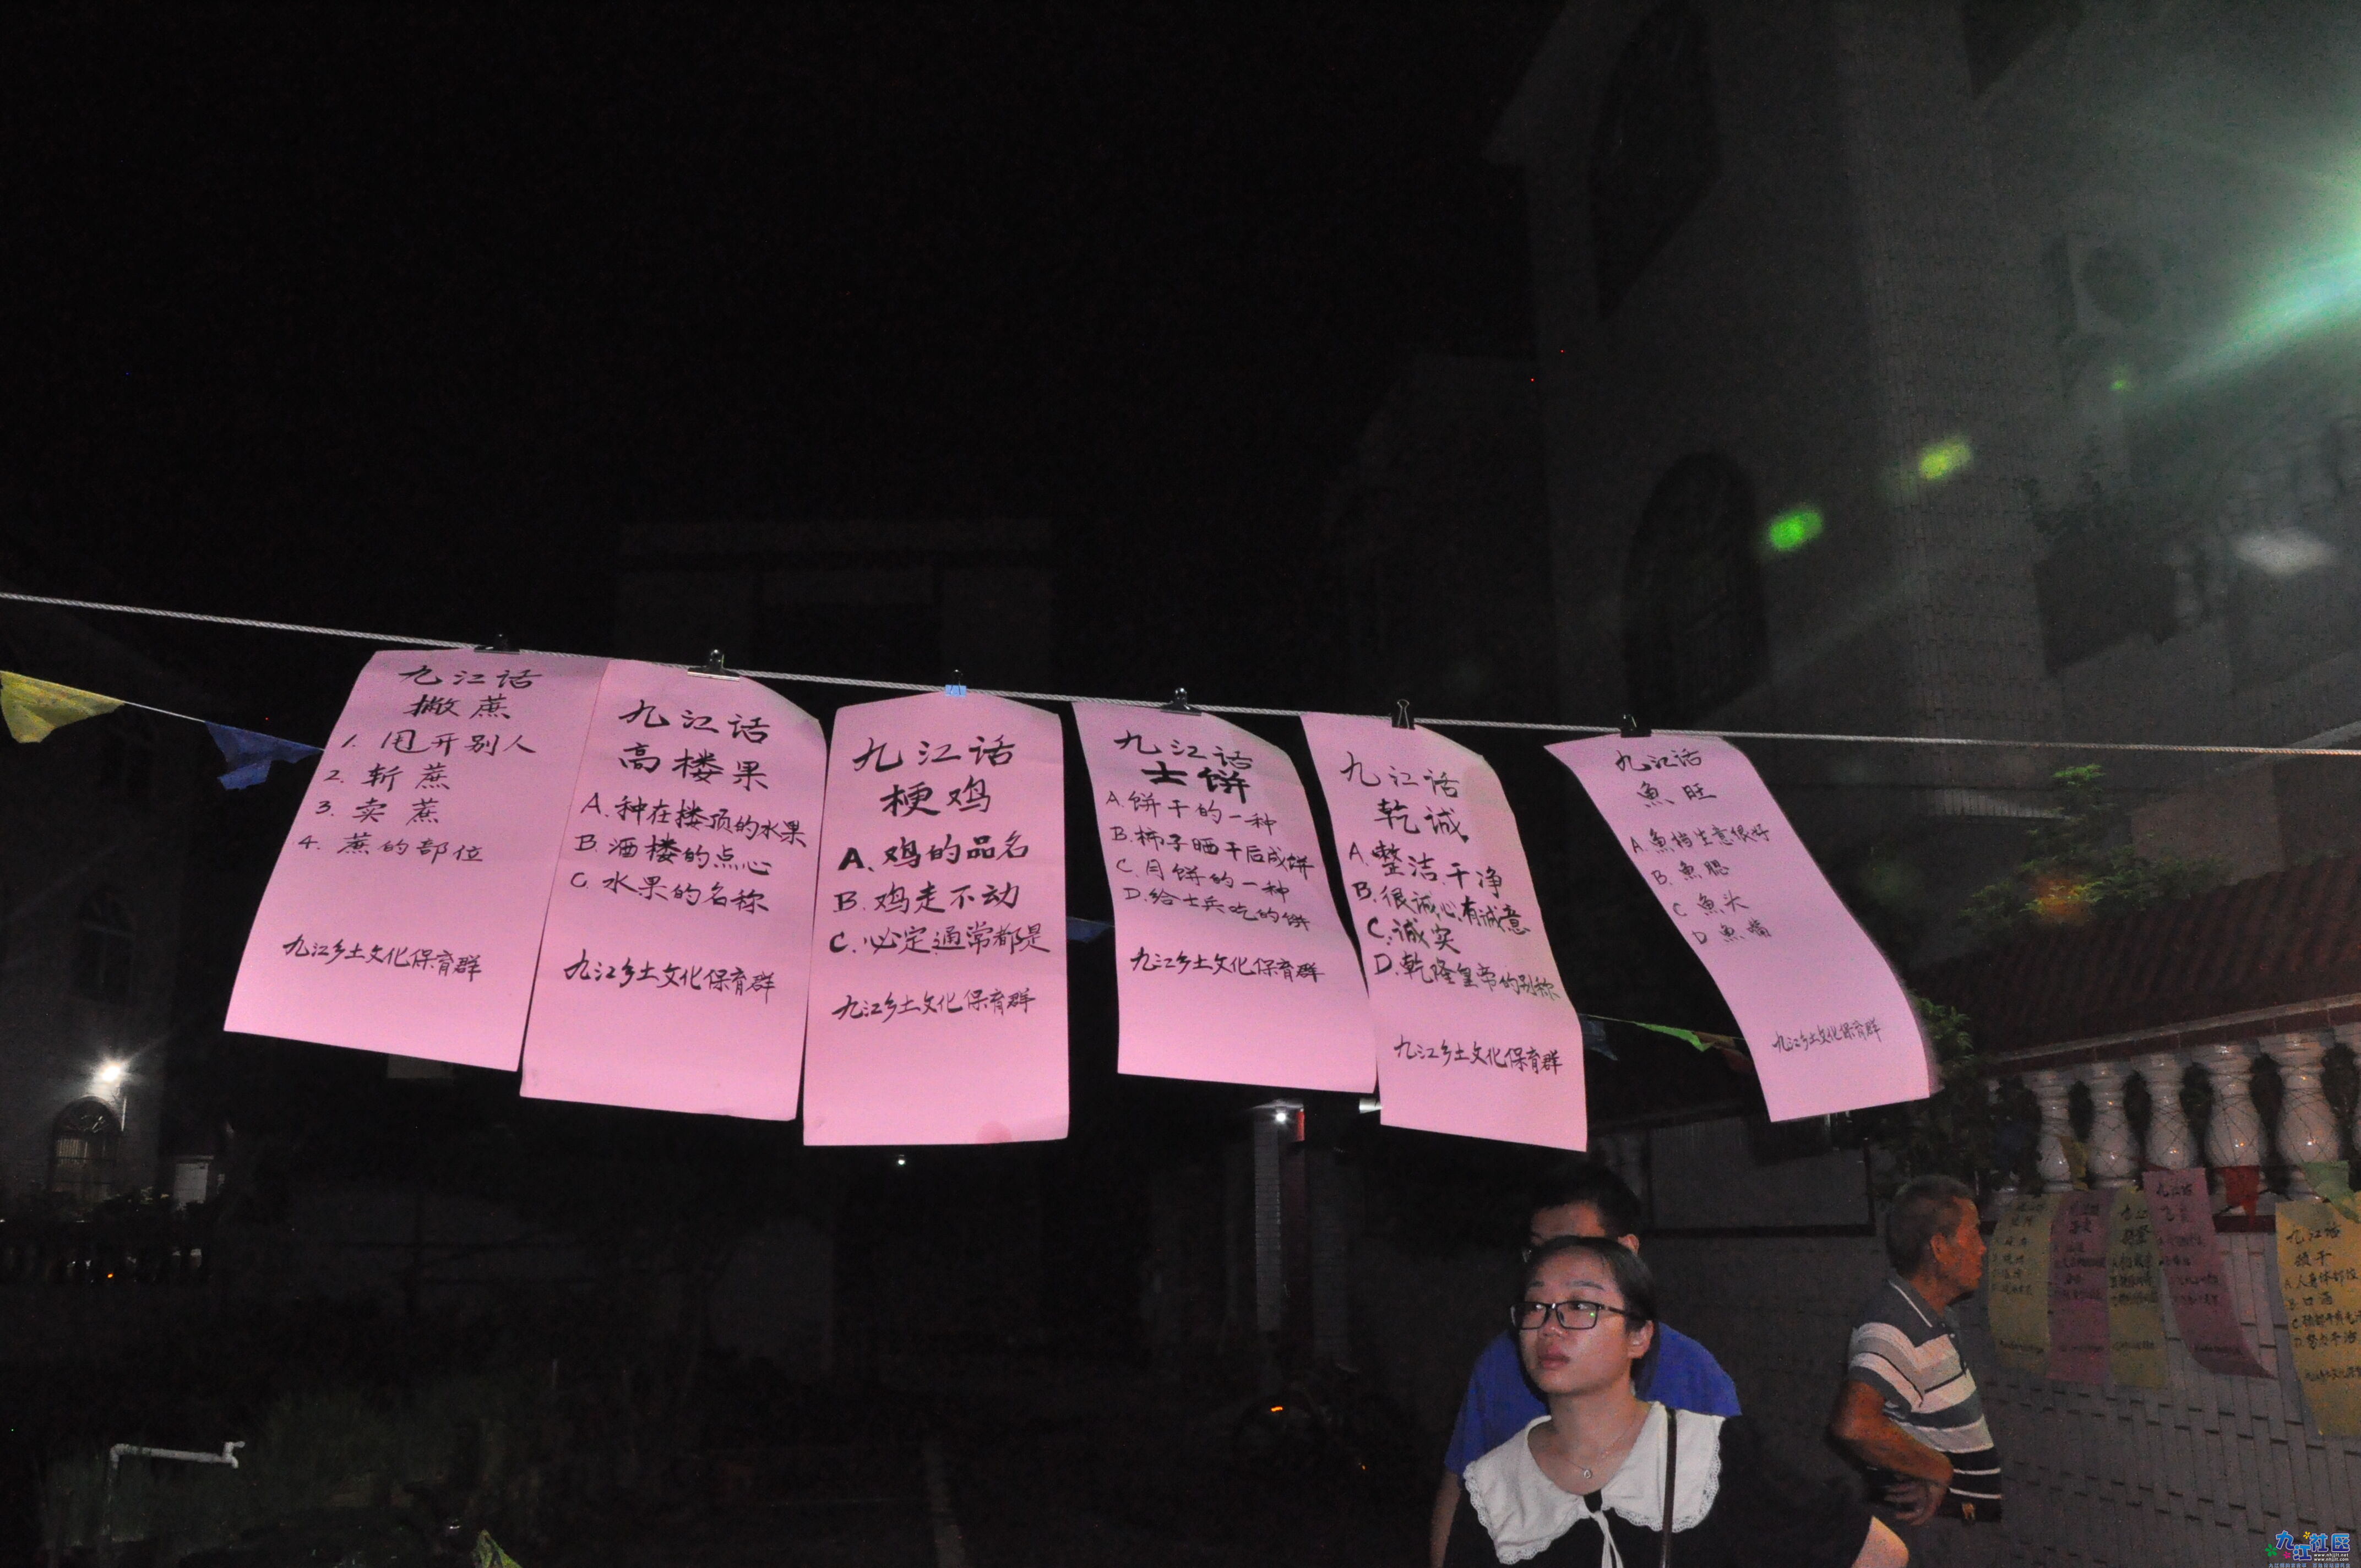 九江话
撇蔗
1. 甩开别人
2. 斩蔗
3. 卖蔗
4. 蔗的部位
九江乡土文化保育群
九江话
高楼果
A. 种在楼顶的水果
B. 酒楼的点心
C. 水果的名称
九江乡土文化保育群
九江话
梗鸡
A. 鸡的品名
B. 鸡走不动
C. 必定,通常都是
九江乡土文化保育群
九江话
士饼
A. 饼干的一种
B. 柿子晒干后成饼
C. 月饼的一种
D. 给士兵吃的饼
九江乡土文化保育群
九江话
乾诚
A. 整洁,干净
B. 很诚心,有诚意
C. 诚实
D. 乾隆皇帝的别称
九江乡土文化保育群
九江话
魚旺
A. 魚档生意很好
B. 魚腮
C 魚头
D 魚嘴
九江乡土文化保育群
九江话
九江话
A. 人身体部位
B. 口酒
九江社区
www.nhjjt.net